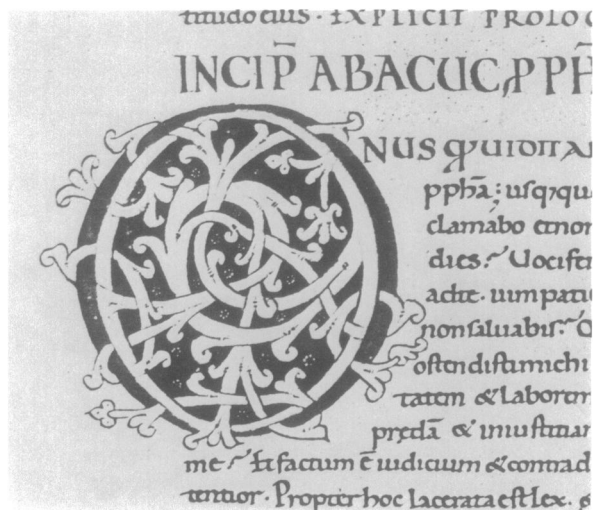 titudo eius · EXPLICIT PROLOG
INCIP̄ ABACUC, PPH
ONUS QUOD
pphā; usq; que
clamabo et non
dies? Uocifer
ad te · uim pati
non saluabis? Q
ostendisti michi
tatem & laborem
prędā & iniustitiam
me? Et factum ē iudicium & contrad
tentior · Propter hoc lacerata est lex · &